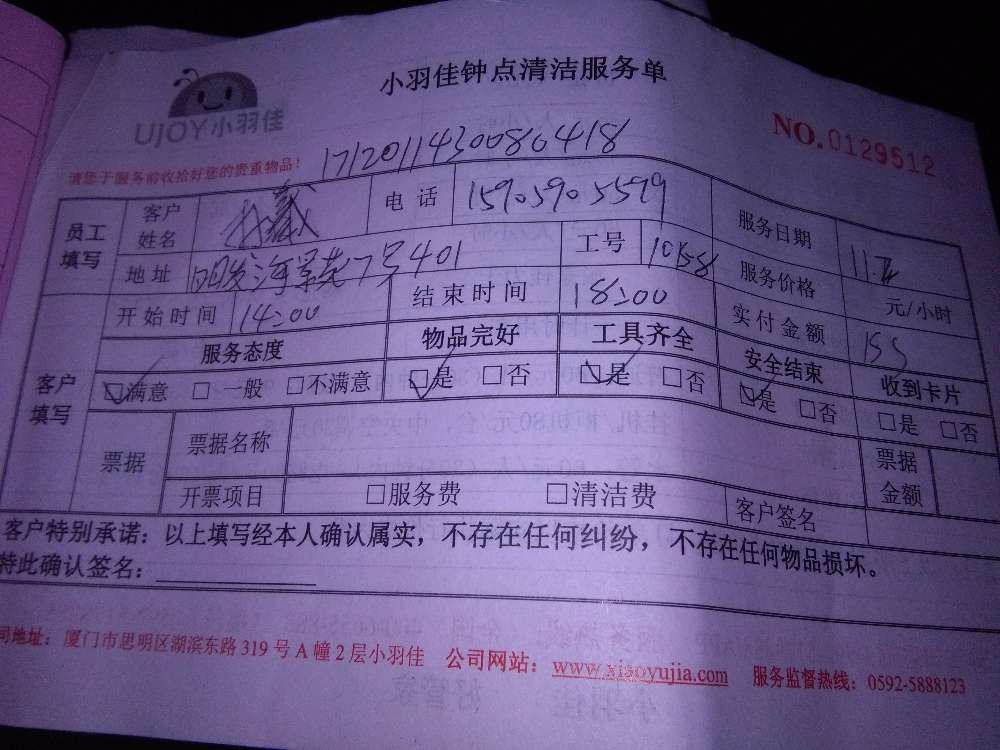 小羽佳钟点清洁服务单
UJOY小羽佳
NO.0129512
请您于服务前收拾好您的贵重物品！
17120114300860418
员工填写 客户姓名 电话 15905905599 服务日期
地址 17号401 工号 10158 服务价格 元/小时
开始时间 14:00 结束时间 18:00 实付金额 155
客户填写 服务态度 物品完好 工具齐全 安全结束 收到卡片
□满意 □一般 □不满意 □是 □否 □是 □否 □是 □否 □是 □否
票据 票据名称 票据金额
开票项目 □服务费 □清洁费 客户签名
客户特别承诺：以上填写经本人确认属实，不存在任何纠纷，不存在任何物品损坏。
特此确认签名：
司地址：厦门市思明区湖滨东路319号A幢2层小羽佳 公司网站：www.xiaoyujia.com 服务监督热线：0592-5888123